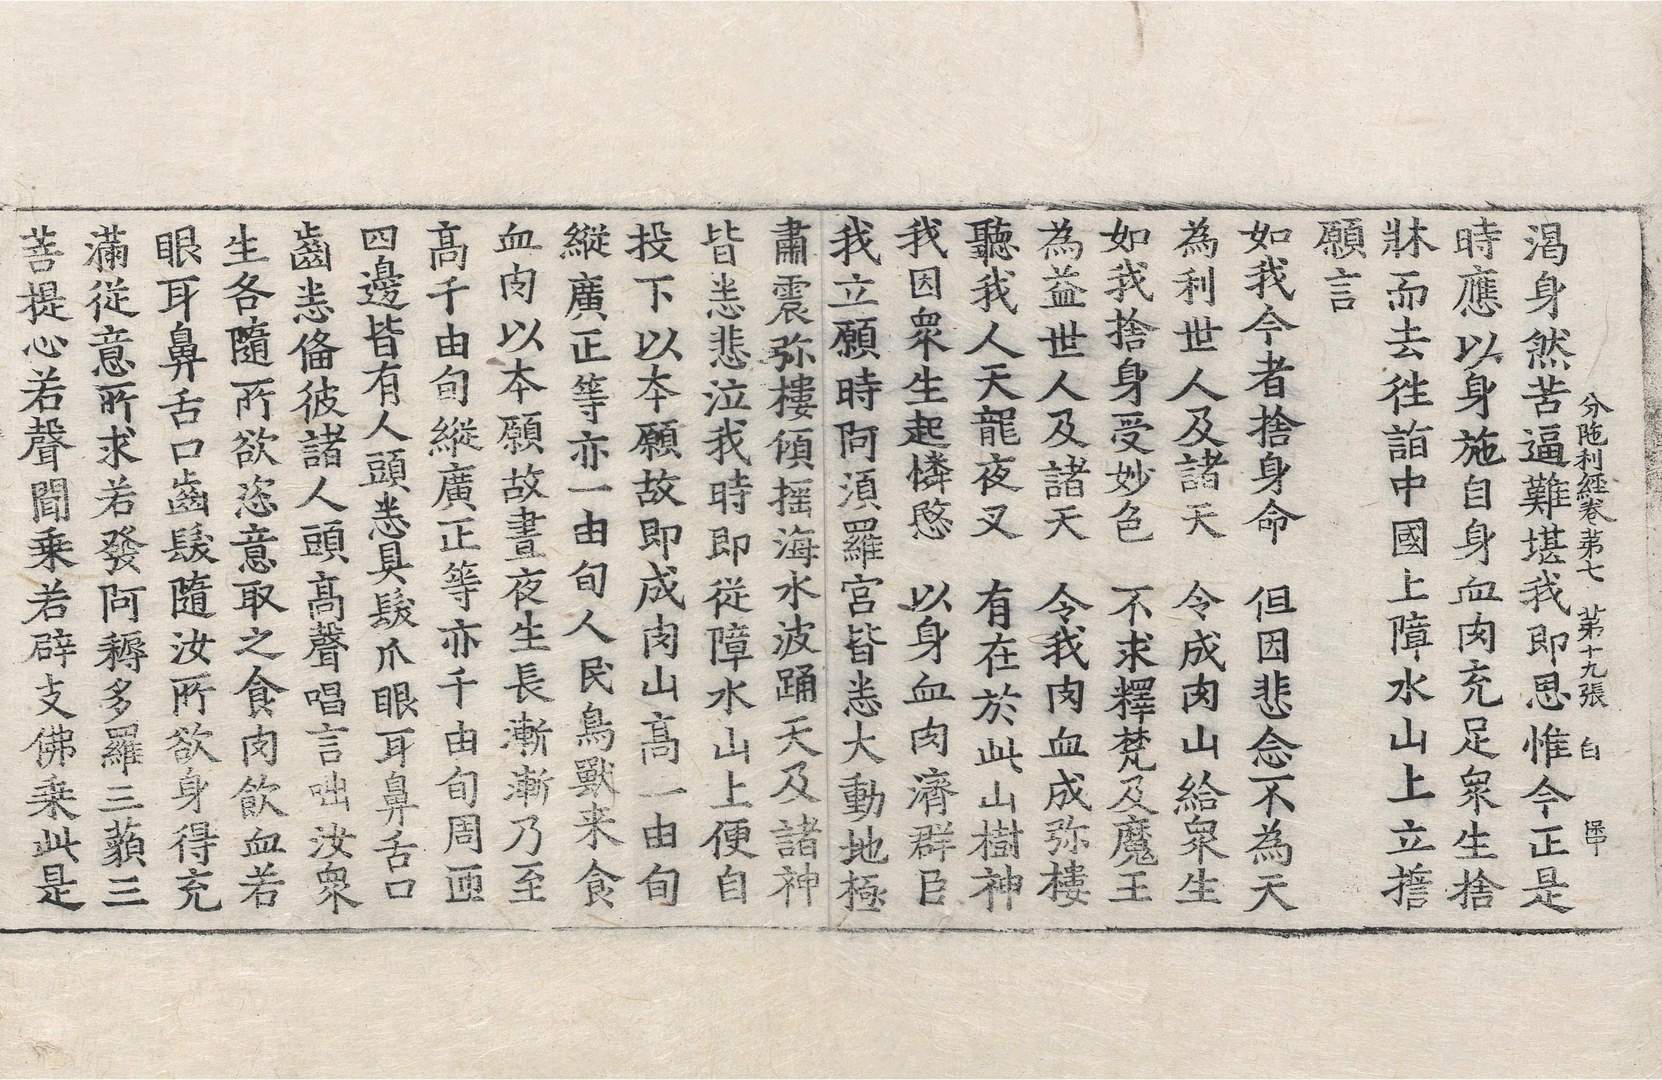 分陁利經卷第七 第十九張 白
渴身然苦逼難堪我即思惟今正是
時應以身施自身血肉充足衆生捨
牀而去徃詣中國上障水山上立擔
願言
如我今者捨身命 但因悲念不為天
為利世人及諸天 令成肉山給衆生
如我捨身受妙色 不求釋梵及魔王
為益世人及諸天 令我肉血成弥樓
聽我人天龍夜叉 有在於此山樹神
我因衆生起憐愍 以身血肉濟群臣
我立願時阿湏羅宮皆恙大動地極
肅震弥樓傾揺海水波踊天及諸神
皆恙悲泣我時即從障水山上便自
投下以本願故即成肉山高一由旬
縱廣正等亦一由旬人民鳥獸来食
血肉以本願故晝夜生長漸漸乃至
高千由旬縱廣正等亦千由旬周迊
四邊皆有人頭恙具髮爪眼耳鼻舌口
齒恙俻彼諸人頭高聲唱言咄汝衆
生各隨所欲恣意取之食肉飲血若
眼耳鼻舌口齒髮隨汝所欲身得充
滿從意所求若發阿耨多羅三藐三
菩提心若聲聞乗若辟支佛乗此是